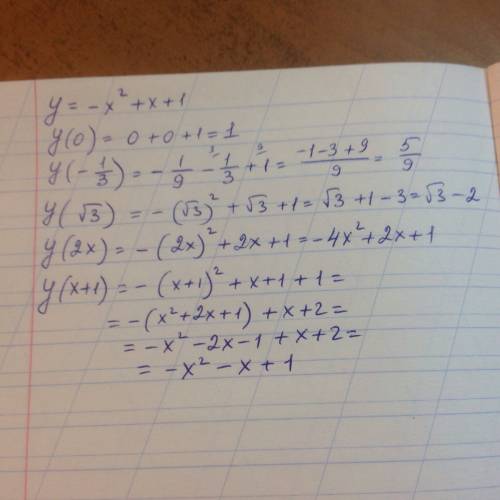 y = -x² + x + 1
y(0) = 0 + 0 + 1 = 1
y(-1/3) = -1/9 - 1/3 (3) + 1 (9) = (-1-3+9)/9 = 5/9
y(√3) = -(√3)² + √3 + 1 = √3 + 1 - 3 = √3 - 2
y(2x) = -(2x)² + 2x + 1 = -4x² + 2x + 1
y(x+1) = -(x+1)² + x + 1 + 1 =
= -(x² + 2x + 1) + x + 2 =
= -x² - 2x - 1 + x + 2 =
= -x² - x + 1